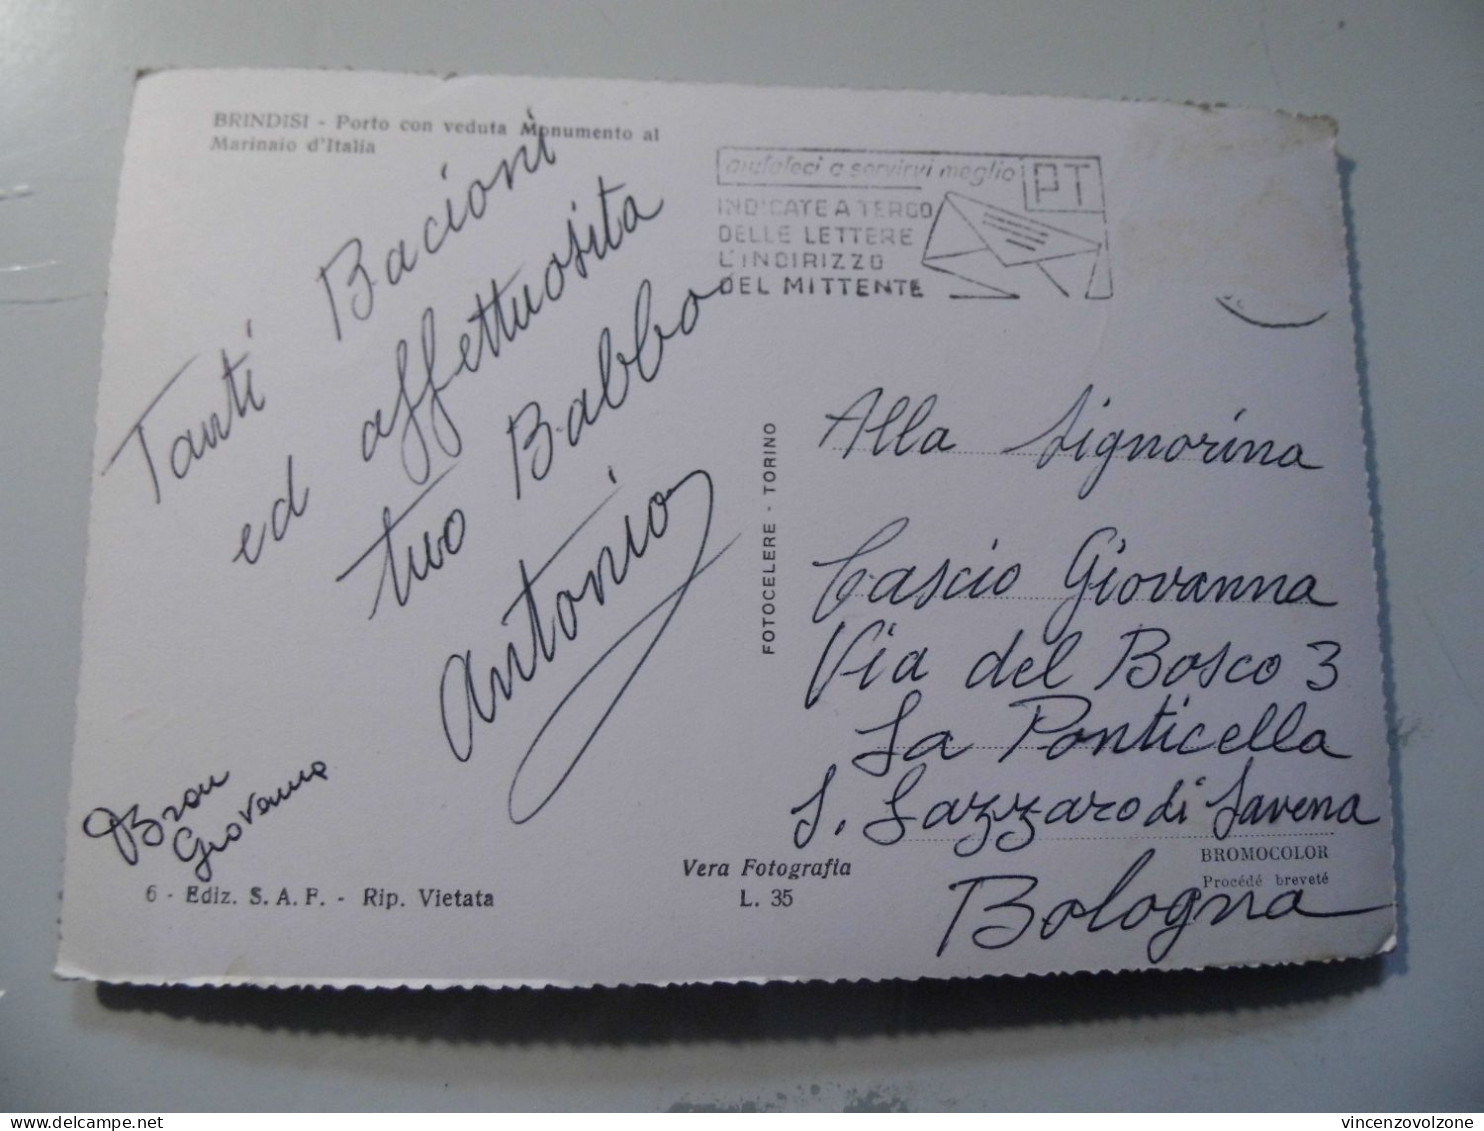 BRINDISI - Porto con veduta Monumento al
Marinaio d'Italia
Tanti Bacioni
ed affettuosita
tuo Babbo
Antonio
Giovanna
6 - Ediz. S. A. F. - Rip. Vietata
Vera Fotografia
L. 35
FOTOCELERE - TORINO
aiutateci a servirvi meglio
PT
INDICATE A TERGO
DELLE LETTERE
L'INDIRIZZO
DEL MITTENTE
Alla Signorina
Cascio Giovanna
Via del Bosco 3
La Ponticella
S. Lazzaro di Savena
Bologna
BROMOCOLOR
Procédé breveté
vincenzovolzone